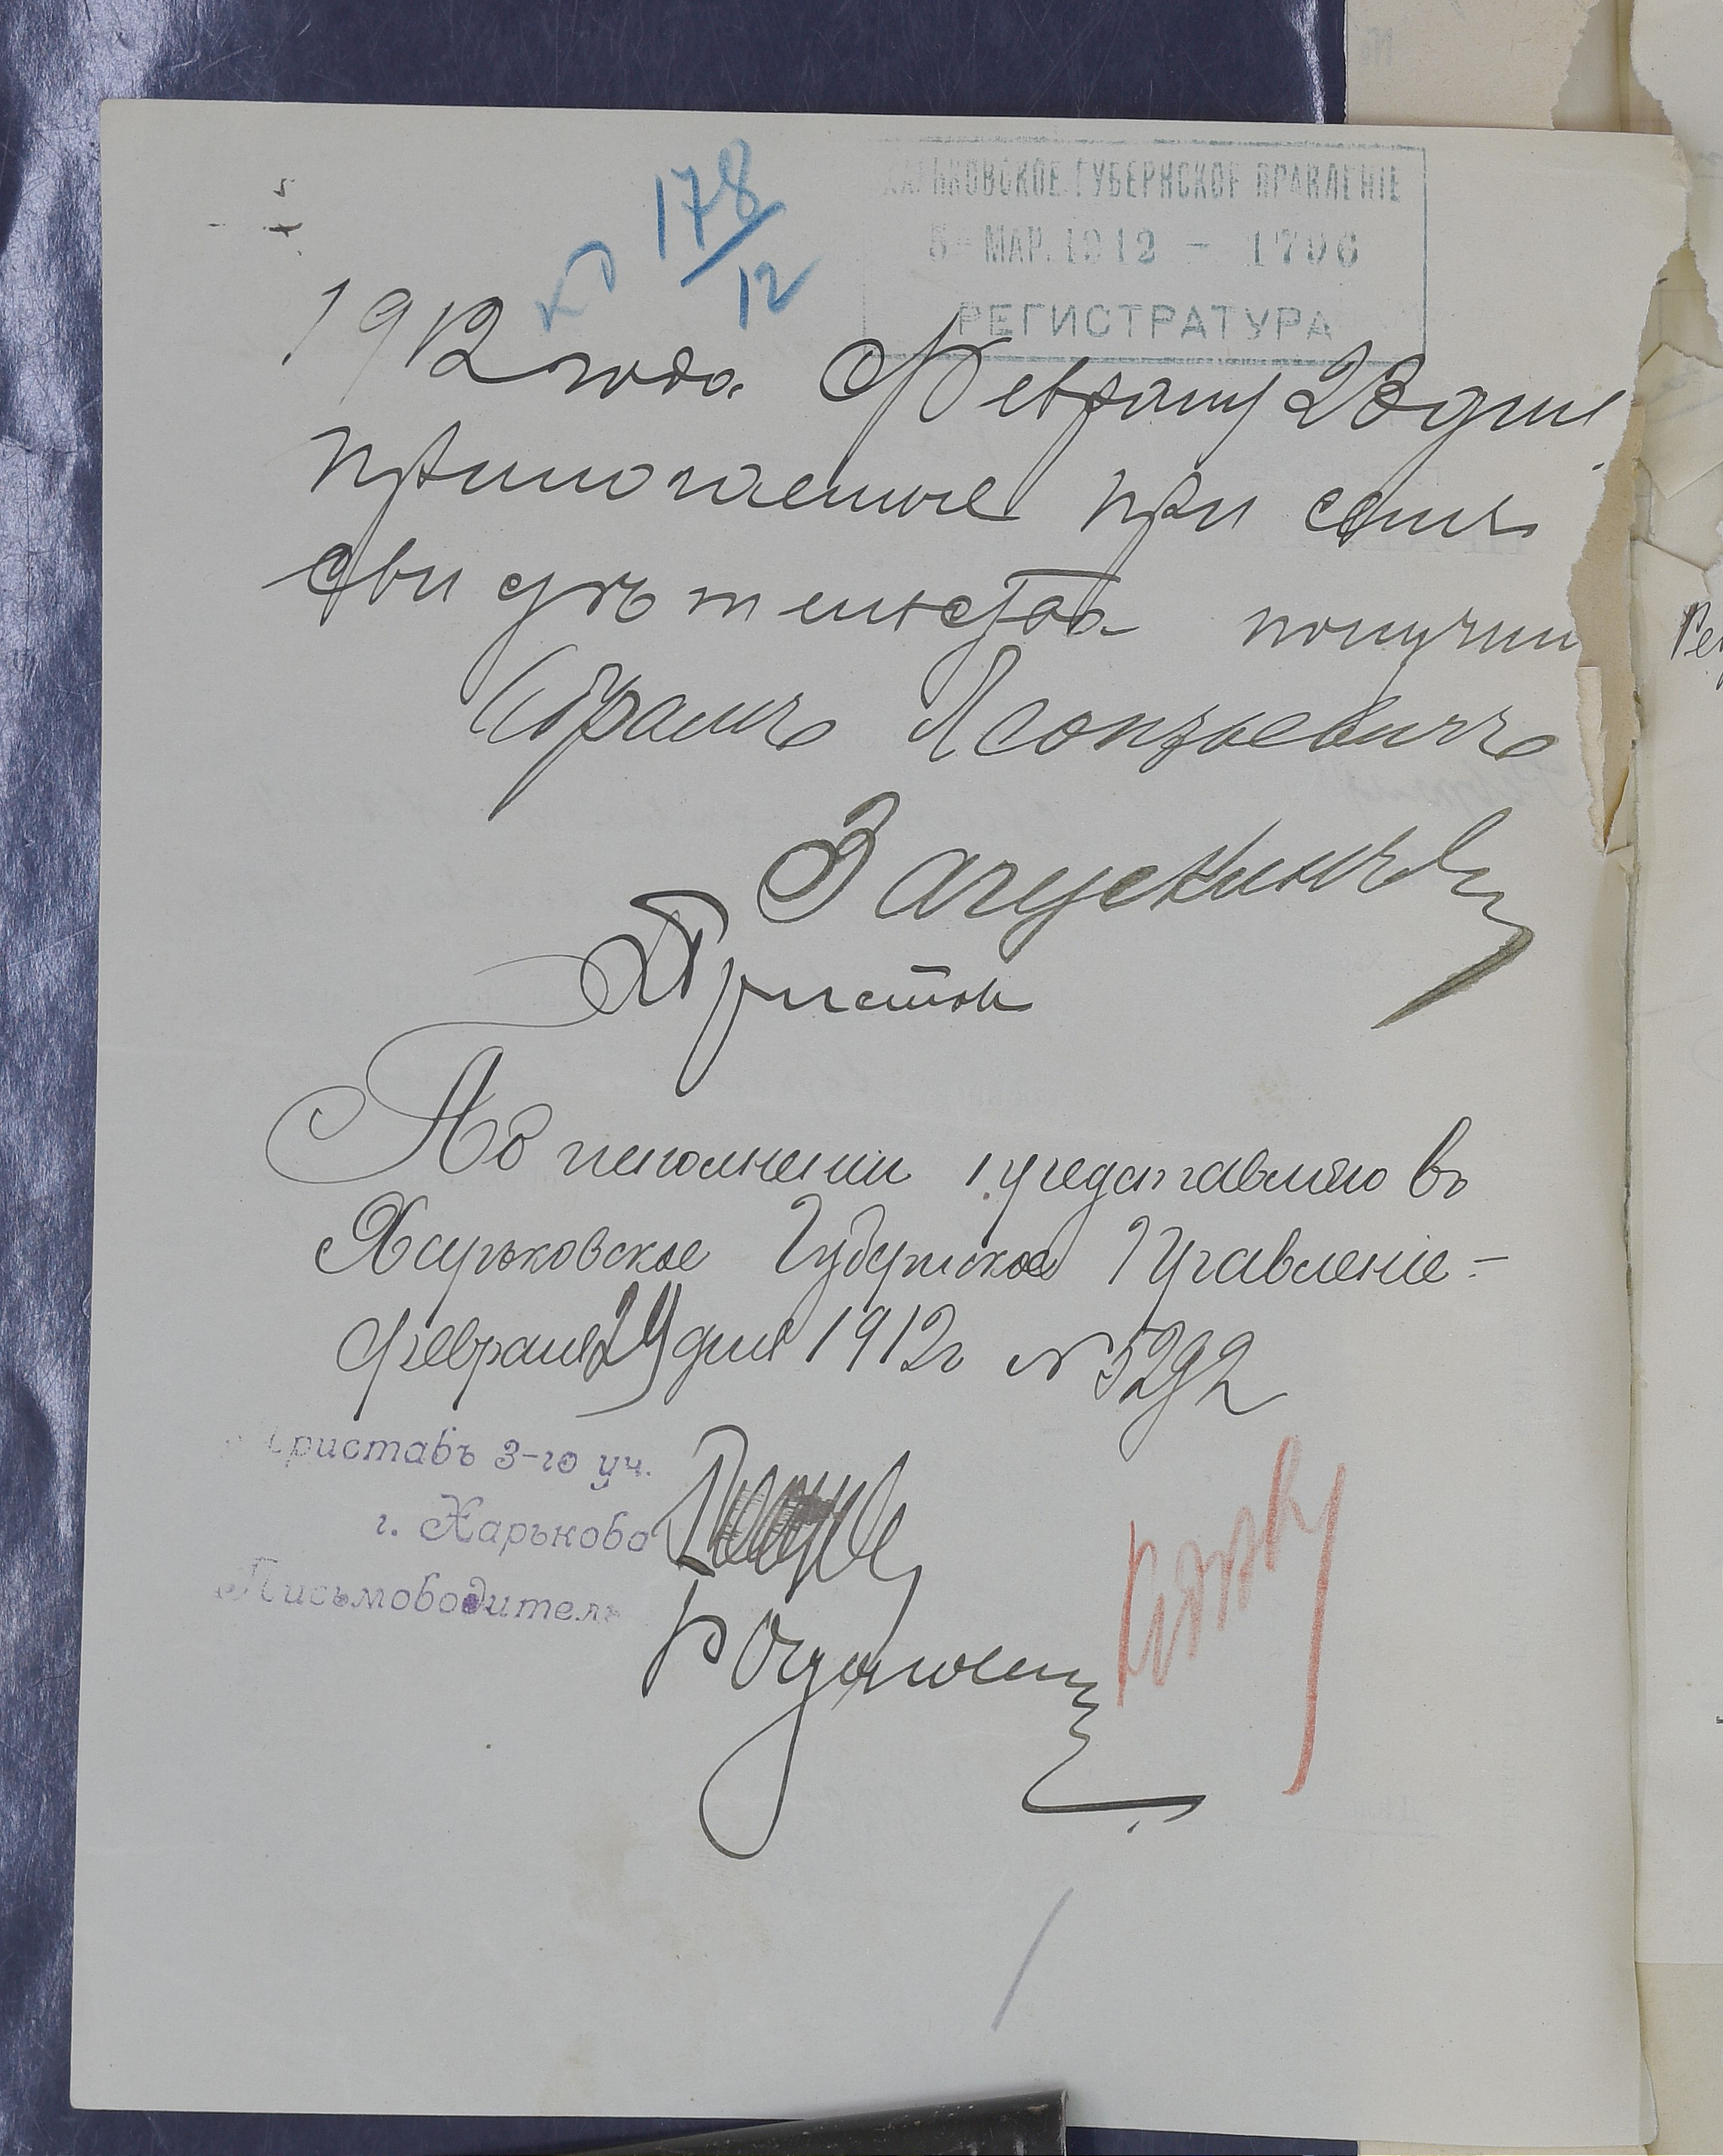 178/12
ХАРЬКОВСКОЕ ГУБЕРНСКОЕ ПРАВЛЕНІЕ
5 - МАР. 1912 - 1796
РЕГИСТРАТУРА
1912 года Февраля 23 дня
прилогаемое при семъ
свидѣтельства получил
Абрамъ Леонтьевичъ
Загускинъ
Пристав
По исполнении представляю въ
Харьковское Губернское Правленіе -
февраля 29 дня 1912 г № 5292
Приставъ 3-го уч.
г. Харькова
Письмоводитель